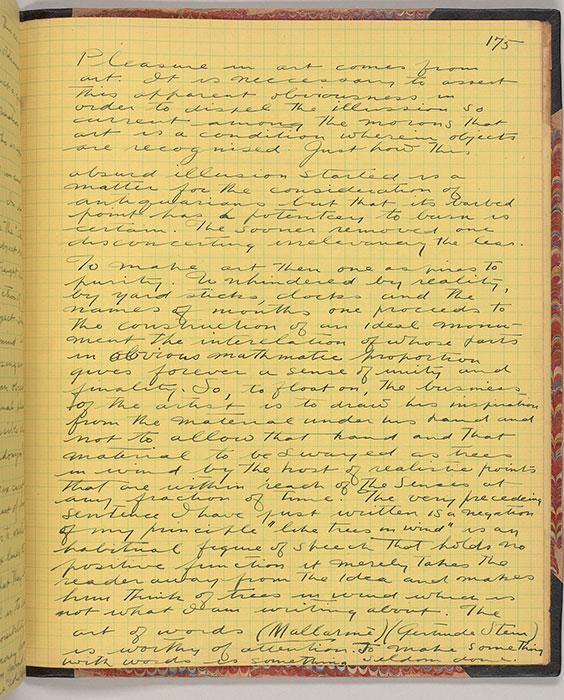 175
Pleasure in art comes from
art. It is neccessary to assert
this apparent obviousness in
order to dispel the illussion so
current among the morons that
art is a condition wherein objects
are recognised. Just how this
absurd illusion started is a
matter for the consideration of
antiquarians but that its barbed
point has a potentcey to burn is
certain. The sooner removed one
disconcerting irrelevancy the less.
To make art then one aspires to
purity. Unhindered by reality,
by yard sticks, clocks and the
names of months one proceeds to
the construction of an ideal monu-
ment the interelation of whose parts
in obvious mathmatic proportion
gives forever a sense of unity and
finality. So, to float on, the business
of the artist is to draw his inspiration
from the material under his hand and
not to allow that hand and that
material to be swayed as trees
in wind by the host of realistic points
that are within reach of the senses at
any fraction of time. The very preceeding
sentence I have just written is a negation
of my principle "like trees in wind" is an
habitual figure of speech that holds no
positive function it merely takes the
reader away from the idea and makes
him think of trees in wind which is
not what I am writing about. The
art of words (Mallarmé) (Gertrude Stein)
is worthy of attention. To make something
with words is something seldom done.